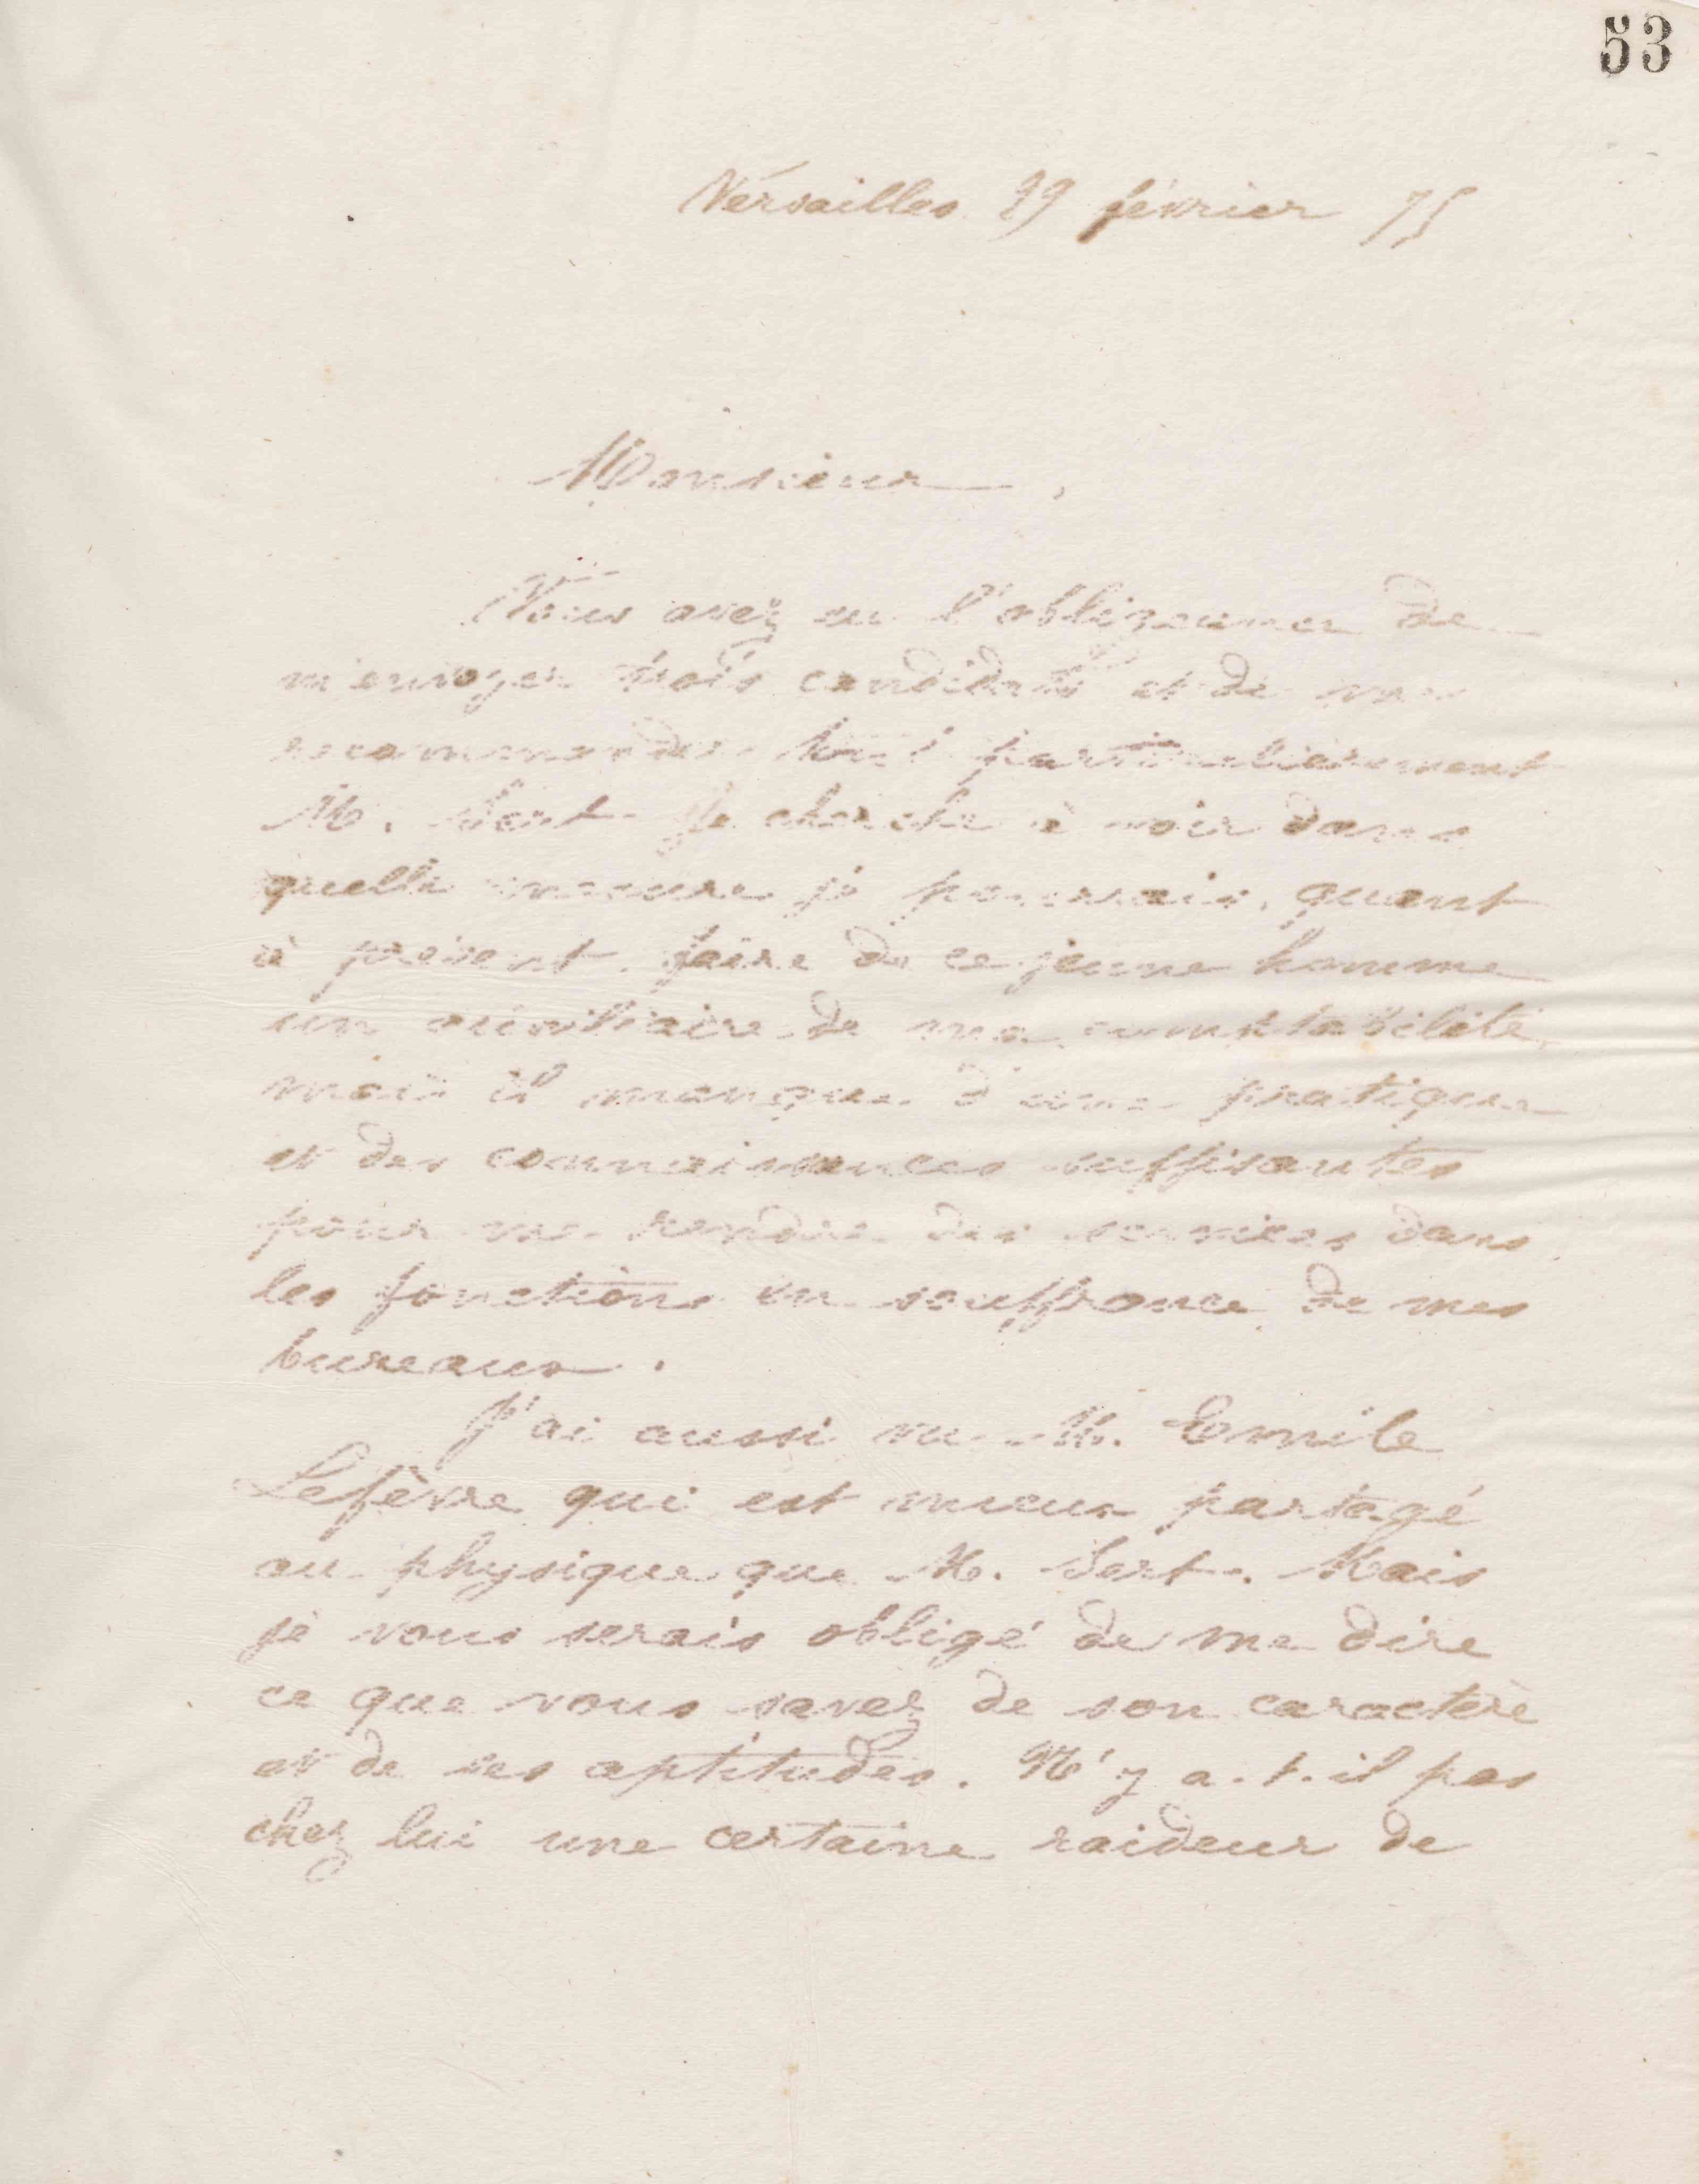 53
Versailles 22 février 75
Monsieur,
Vous avez eu l'obligeance de
m'envoyer trois candidats et de me
recommander tout particulièrement
M. Sert. Je cherche à voir dans
quelle mesure je pourrais, quant
à présent, faire de ce jeune homme
un auxiliaire de ma comptabilité,
mais il manque d'une pratique
et des connaissances suffisantes
pour me rendre des services dans
les fonctions en souffrance de mes
bureaux.
J'ai aussi vu M. Emile
Lefèvre qui est mieux partagé
au physique que M. Sert. Mais
je vous serais obligé de me dire
ce que vous savez de son caractère
et de ses aptitudes. N'y a-t-il pas
chez lui une certaine raideur de